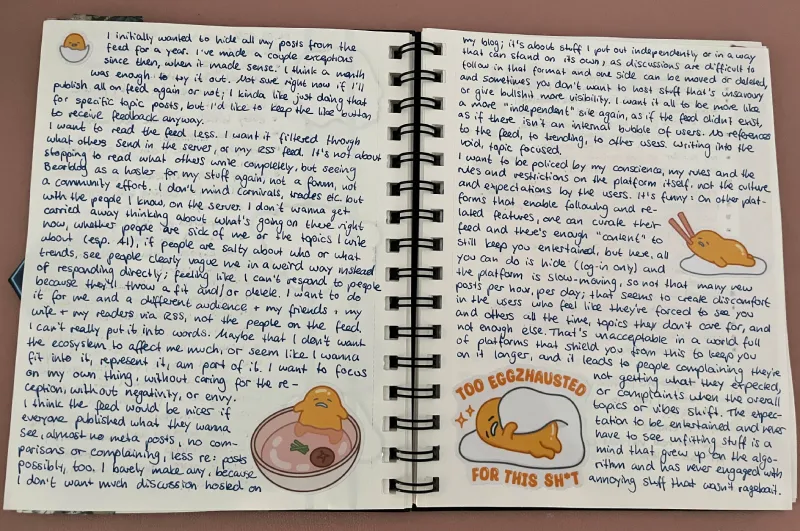 I initially wanted to hide all my posts from the
feed for a year. I've made a couple exceptions
since then, when it made sense. I think a month
was enough to try it out. Not sure right now if I'll
publish all on feed again or not; I kinda like just doing that
for specific topic posts, but I'd like to keep the like button
to receive feedback anyway.
I want to read the feed less. I want it filtered through
what others send in the server, or my RSS feed. It's not about
stopping to read what others write completely, but seeing
Bearblog as a hoster for my stuff again, not a forum, not
a community effort. I don't mind carnivals, trades etc. but
with the people I know, on the server. I don't wanna get
carried away thinking about what's going on there right
now, whether people are sick of me or the topics I write
about (esp. AI), if people are salty about who or what
trends, see people clearly vague me in a weird way instead
of responding directly; feeling like I can't respond to people
because they'll throw a fit and/or delete. I want to do
it for me and a different audience + my friends + my
wife + my readers via RSS, not the people on the feed.
I can't really put it into words. Maybe that I don't want
the ecosystem to affect me much, or seem like I wanna
fit into it, represent it, am part of it. I want to focus
on my own thing, without caring for the re-
ception, without negativity, or envy.
I think the feed would be nices if
everyone published what they wanna
see, almost no meta posts, no com-
parisons or complaining, less re: posts
possibly, too. I barely make any, because
I don't want much discussion hosted on
my blog; it's about stuff I put out independently or in a way
that can stand on its own, as discussions are difficult to
follow in that format and one side can be moved or deleted,
and sometimes you don't want to host stuff that's unsavoury
or give bullshit more visibility. I want it all to be more like
a more "independent" site again, as if the feed didn't exist,
as if there isn't an internal bubble of users. No references
to the feed, to trending, to other users. Writing into the
void, topic focused.
I want to be policed by my conscience, my rules and the
rules and restrictions on the platform itself, not the culture
and expectations by the users. It's funny: On other plat-
forms that enable following and re-
lated features, one can curate their
feed and there's enough "content" to
still keep you entertained, but here, all
you can do is hide (log-in only) and
the platform is slow-moving, so not that many new
posts per hour, per day; that seems to create discomfort
in the users who feel like they're forced to see you
and others all the time, topics they don't care for, and
not enough else. That's unacceptable in a world full
of platforms that shield you from this to keep you
on it longer, and it leads to people complaining they're
not getting what they expected,
or complaints when the overall
topics or vibes shift. The expec-
tation to be entertained and never
have to see unfitting stuff is a
mind that grew up on the algo-
rithm and has never engaged with
annoying stuff that wasn't ragebait.
TOO EGGZHAUSTED
FOR THIS SH*T